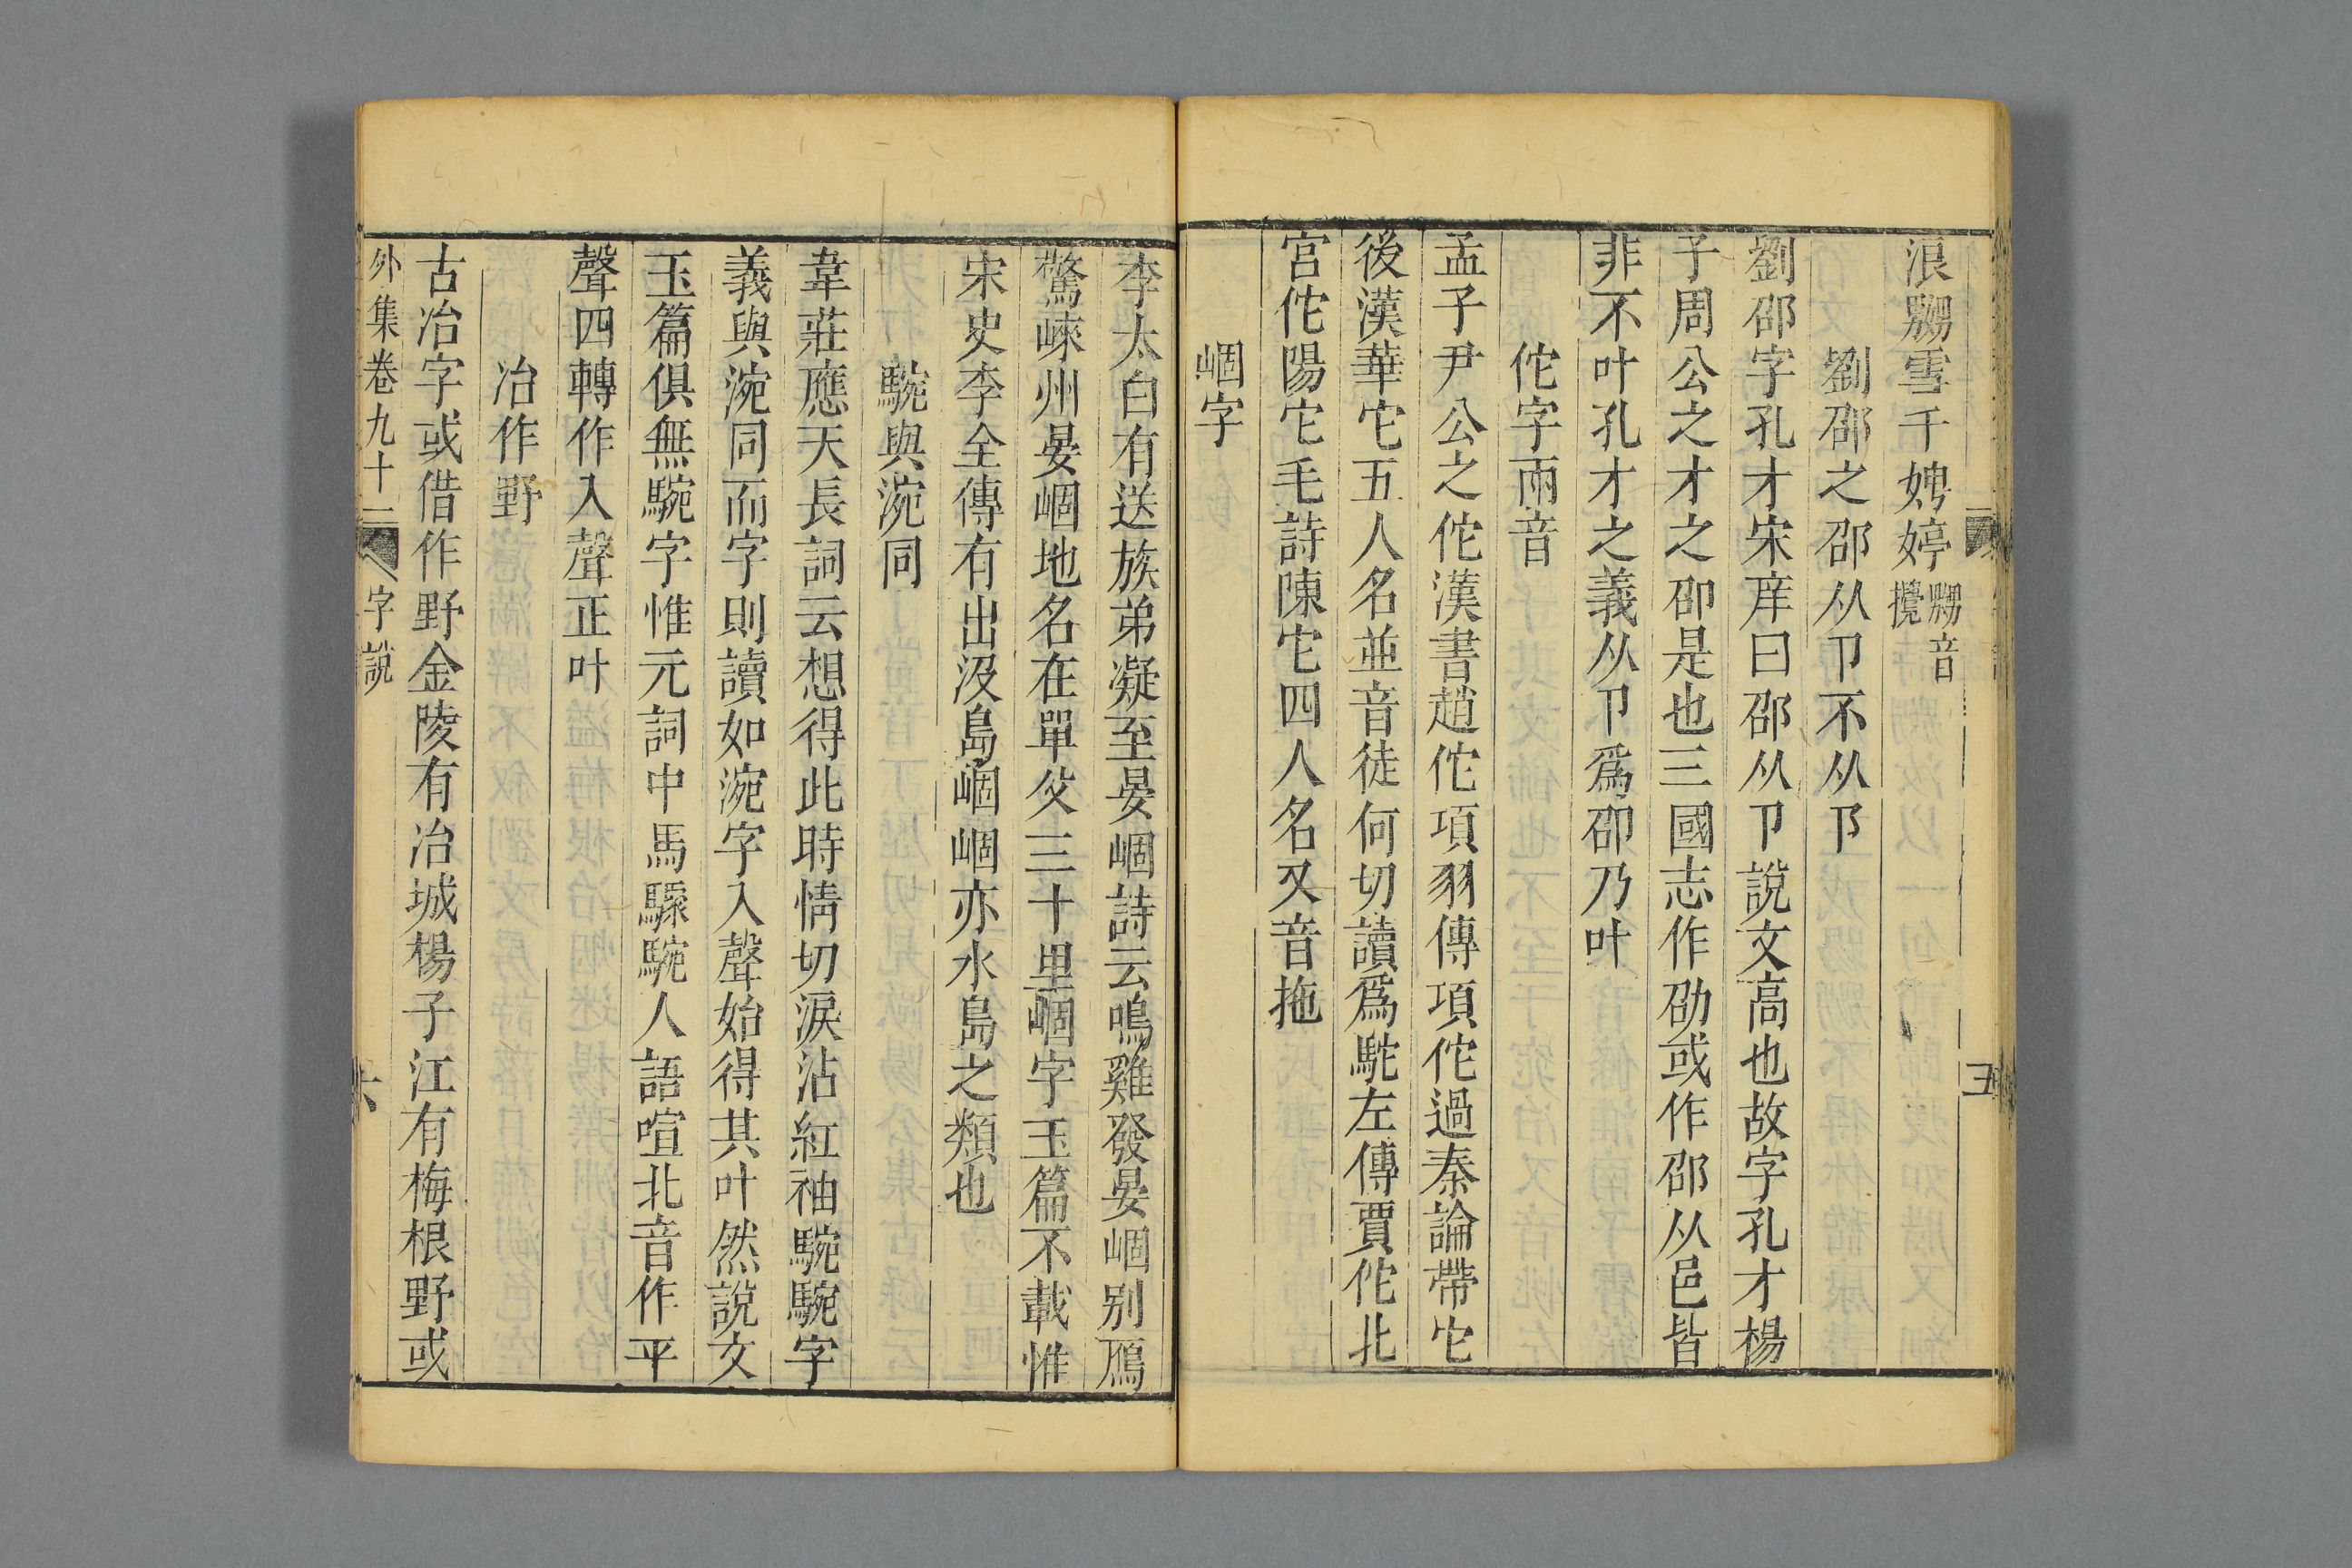 浪嬲雪千娉婷嬲音攪
劉卲之卲从卩不从阝
劉卲字孔才宋庠曰卲从卩說文高也故字孔才楊
子周公之才之卲是也三國志作劭或作邵从邑皆
非不叶孔才之義从卩爲卲乃叶
佗字兩音
孟子尹公之佗漢書趙佗項羽傳項佗過秦論帶它
後漢華它五人名並音徒何切讀爲駝左傳賈佗北
宮佗陽它毛詩陳它四人名又音拖
崓字
五
李太白有送族弟凝至晏崓詩云鳴雞發晏崓別鴈
驚崍州晏崓地名在單父三十里崓字玉篇不載惟
宋史李全傳有出沒島崓崓亦水島之類也
䩊與涴同
韋莊應天長詞云想得此時情切淚沾紅袖䩊䩊字
義與涴同而字則讀如涴字入聲始得其叶然說文
玉篇俱無䩊字惟元詞中馬驟䩊人語喧北音作平
聲四轉作入聲正叶
冶作野
古冶字或借作野金陵有冶城楊子江有梅根野或
外集卷九十二 字說 六